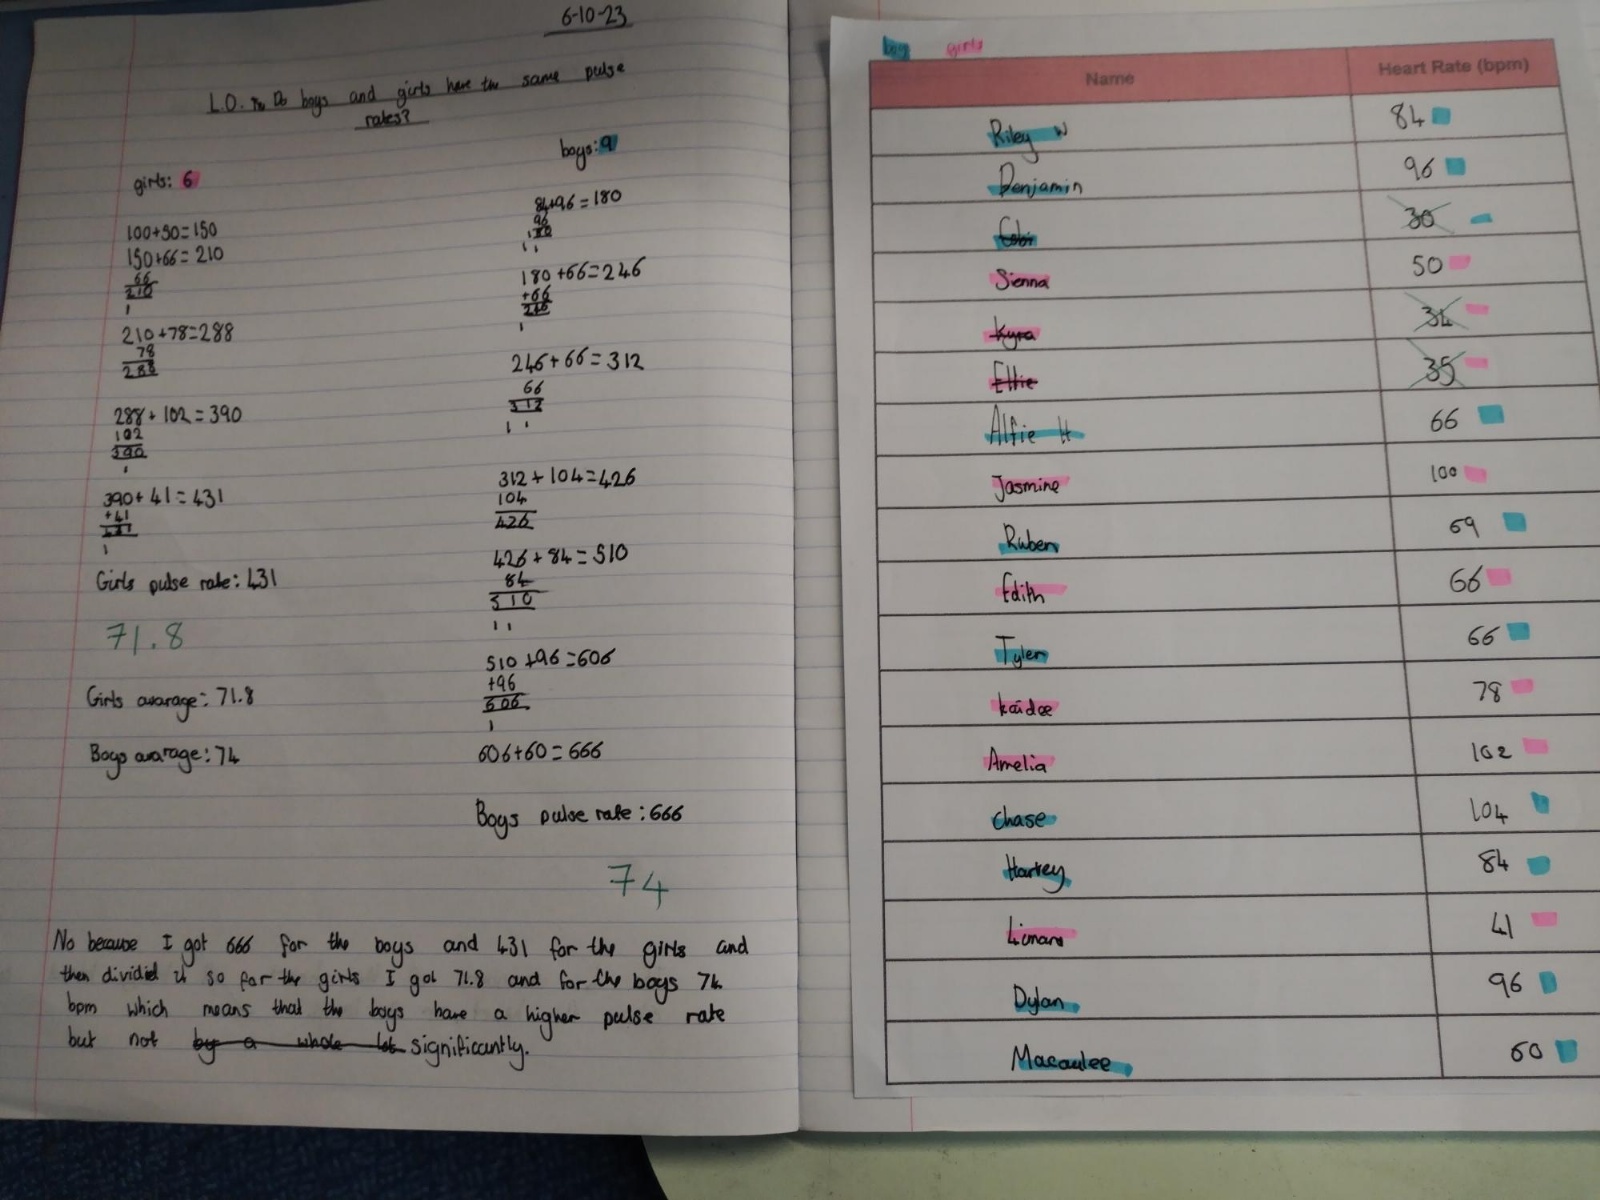 6-10-23
L.O. Do boys and girls have the same pulse
rates?
girls: 6
100+50=150
150+66=210
66
210
1
210+78=288
78
288
288+102=390
102
390
1
390+41=431
+41
431
1
Girls pulse rate: 431
71.8
Girls avarage: 71.8
Boys avarage: 74
boys: 9
84+96=180
96
180
1 1
180+66=246
+66
246
1
246+66=312
66
312
1 1
312+104=426
104
426
426+84=510
84
510
1 1
510+96=606
+96
606
1
606+60=666
Boys pulse rate: 666
74
No because I got 666 for the boys and 431 for the girls and
then dividid it so for the girls I got 71.8 and for the boys 74
bpm which means that the boys have a higher pulse rate
but not by a whole lot significantly.
boy girls
Name Heart Rate (bpm)
Riley W 84
Benjamin 96
30
Sienna 50
Kyra 34
Ellie 35
Alfie H 66
Jasmine 100
Ruben 69
Edith 66
Tyler 66
kaidee 78
Amelia 102
chase 104
Harvey 84
41
Dylan 96
Macaulee 60